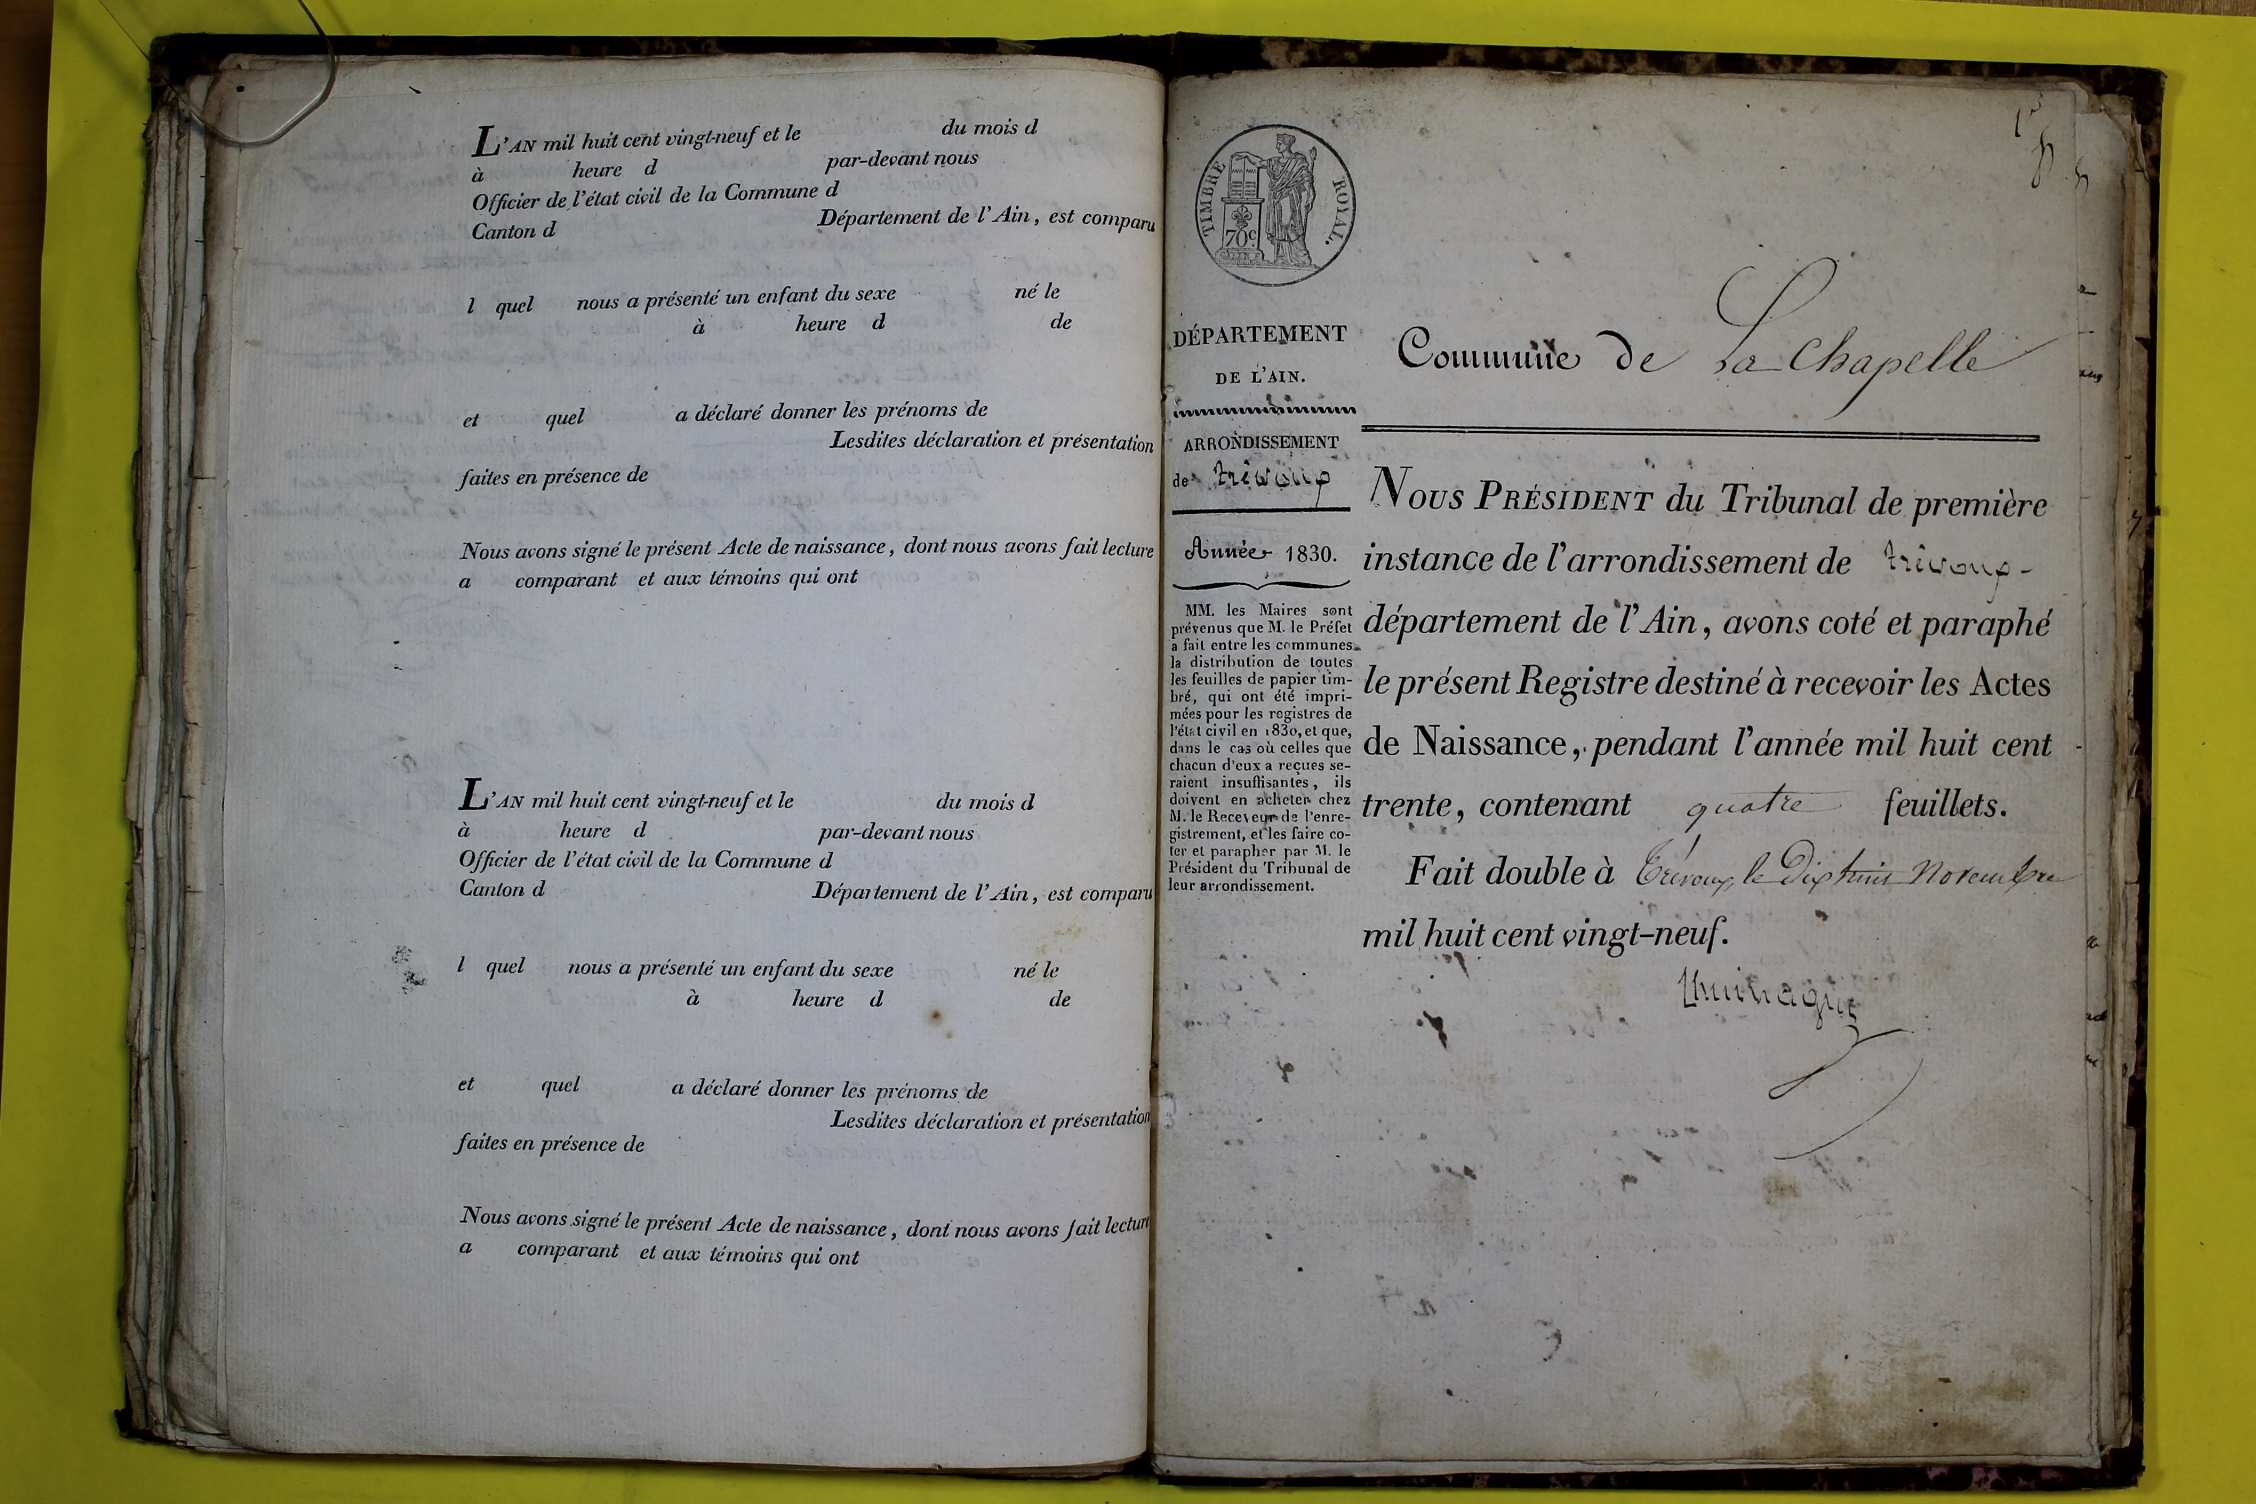 L'AN mil huit cent vingt-neuf et le du mois d
à heure d par-devant nous
Officier de l'état civil de la Commune d
Canton d Département de l'Ain, est comparu
l quel nous a présenté un enfant du sexe né le
à heure d de
et quel a déclaré donner les prénoms de
Lesdites déclaration et présentation
faites en présence de
Nous avons signé le présent Acte de naissance, dont nous avons fait lecture
a comparant et aux témoins qui ont
L'AN mil huit cent vingt-neuf et le du mois d
à heure d par-devant nous
Officier de l'état civil de la Commune d
Canton d Département de l'Ain, est comparu
l quel nous a présenté un enfant du sexe né le
à heure d de
et quel a déclaré donner les prénoms de
Lesdites déclaration et présentation
faites en présence de
Nous avons signé le présent Acte de naissance, dont nous avons fait lecture
a comparant et aux témoins qui ont
TIMBRE ROYAL.
70c
DÉPARTEMENT
DE L'AIN.
ARRONDISSEMENT
de trévoux
Année 1830.
MM. les Maires sont
prévenus que M. le Préfet
a fait entre les communes
la distribution de toutes
les feuilles de papier tim-
bré, qui ont été impri-
mées pour les registres de
l'état civil en 1830, et que,
dans le cas où celles que
chacun d'eux a reçues se-
raient insuffisantes, ils
doivent en acheter chez
M. le Receveur de l'enre-
gistrement, et les faire co-
ter et parapher par M. le
Président du Tribunal de
leur arrondissement.
Commune de La Chapelle
NOUS PRÉSIDENT du Tribunal de première
instance de l'arrondissement de trévoux
département de l'Ain, avons coté et paraphé
le présent Registre destiné à recevoir les Actes
de Naissance, pendant l'année mil huit cent
trente, contenant quatre feuillets.
Fait double à Trévoux, le Dix huit Novembre
mil huit cent vingt-neuf.